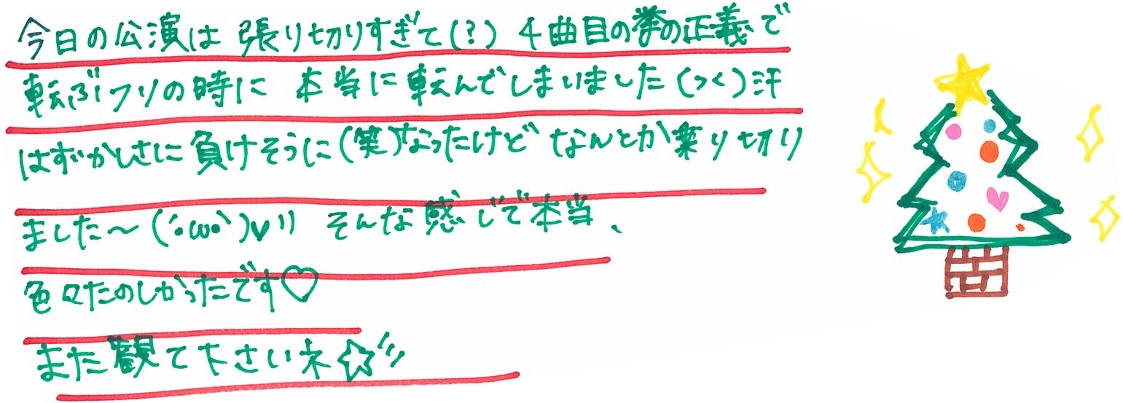 今日の公演は 張り切りすぎて(?) 4曲目の拳の正義で
転ぶフリの時に 本当に転んでしまいました(つく)汗
はずかしさに負けそうに(笑)なったけど なんとか乗り切り
ました〜(´•ω•`)♥〃 そんな感じで本当、
色々たのしかったです♡
また観て下さいネ☆〃